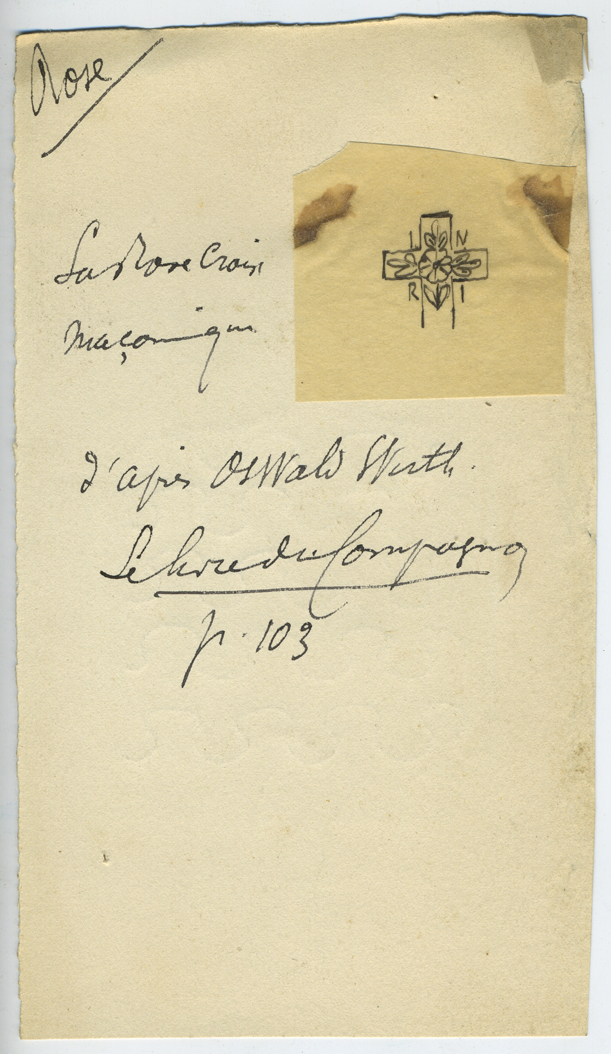 Rose
La Rose Croix
maçonnique
I N
R I
d'après Oswald Wirth.
Le livre du Compagnon
p. 103